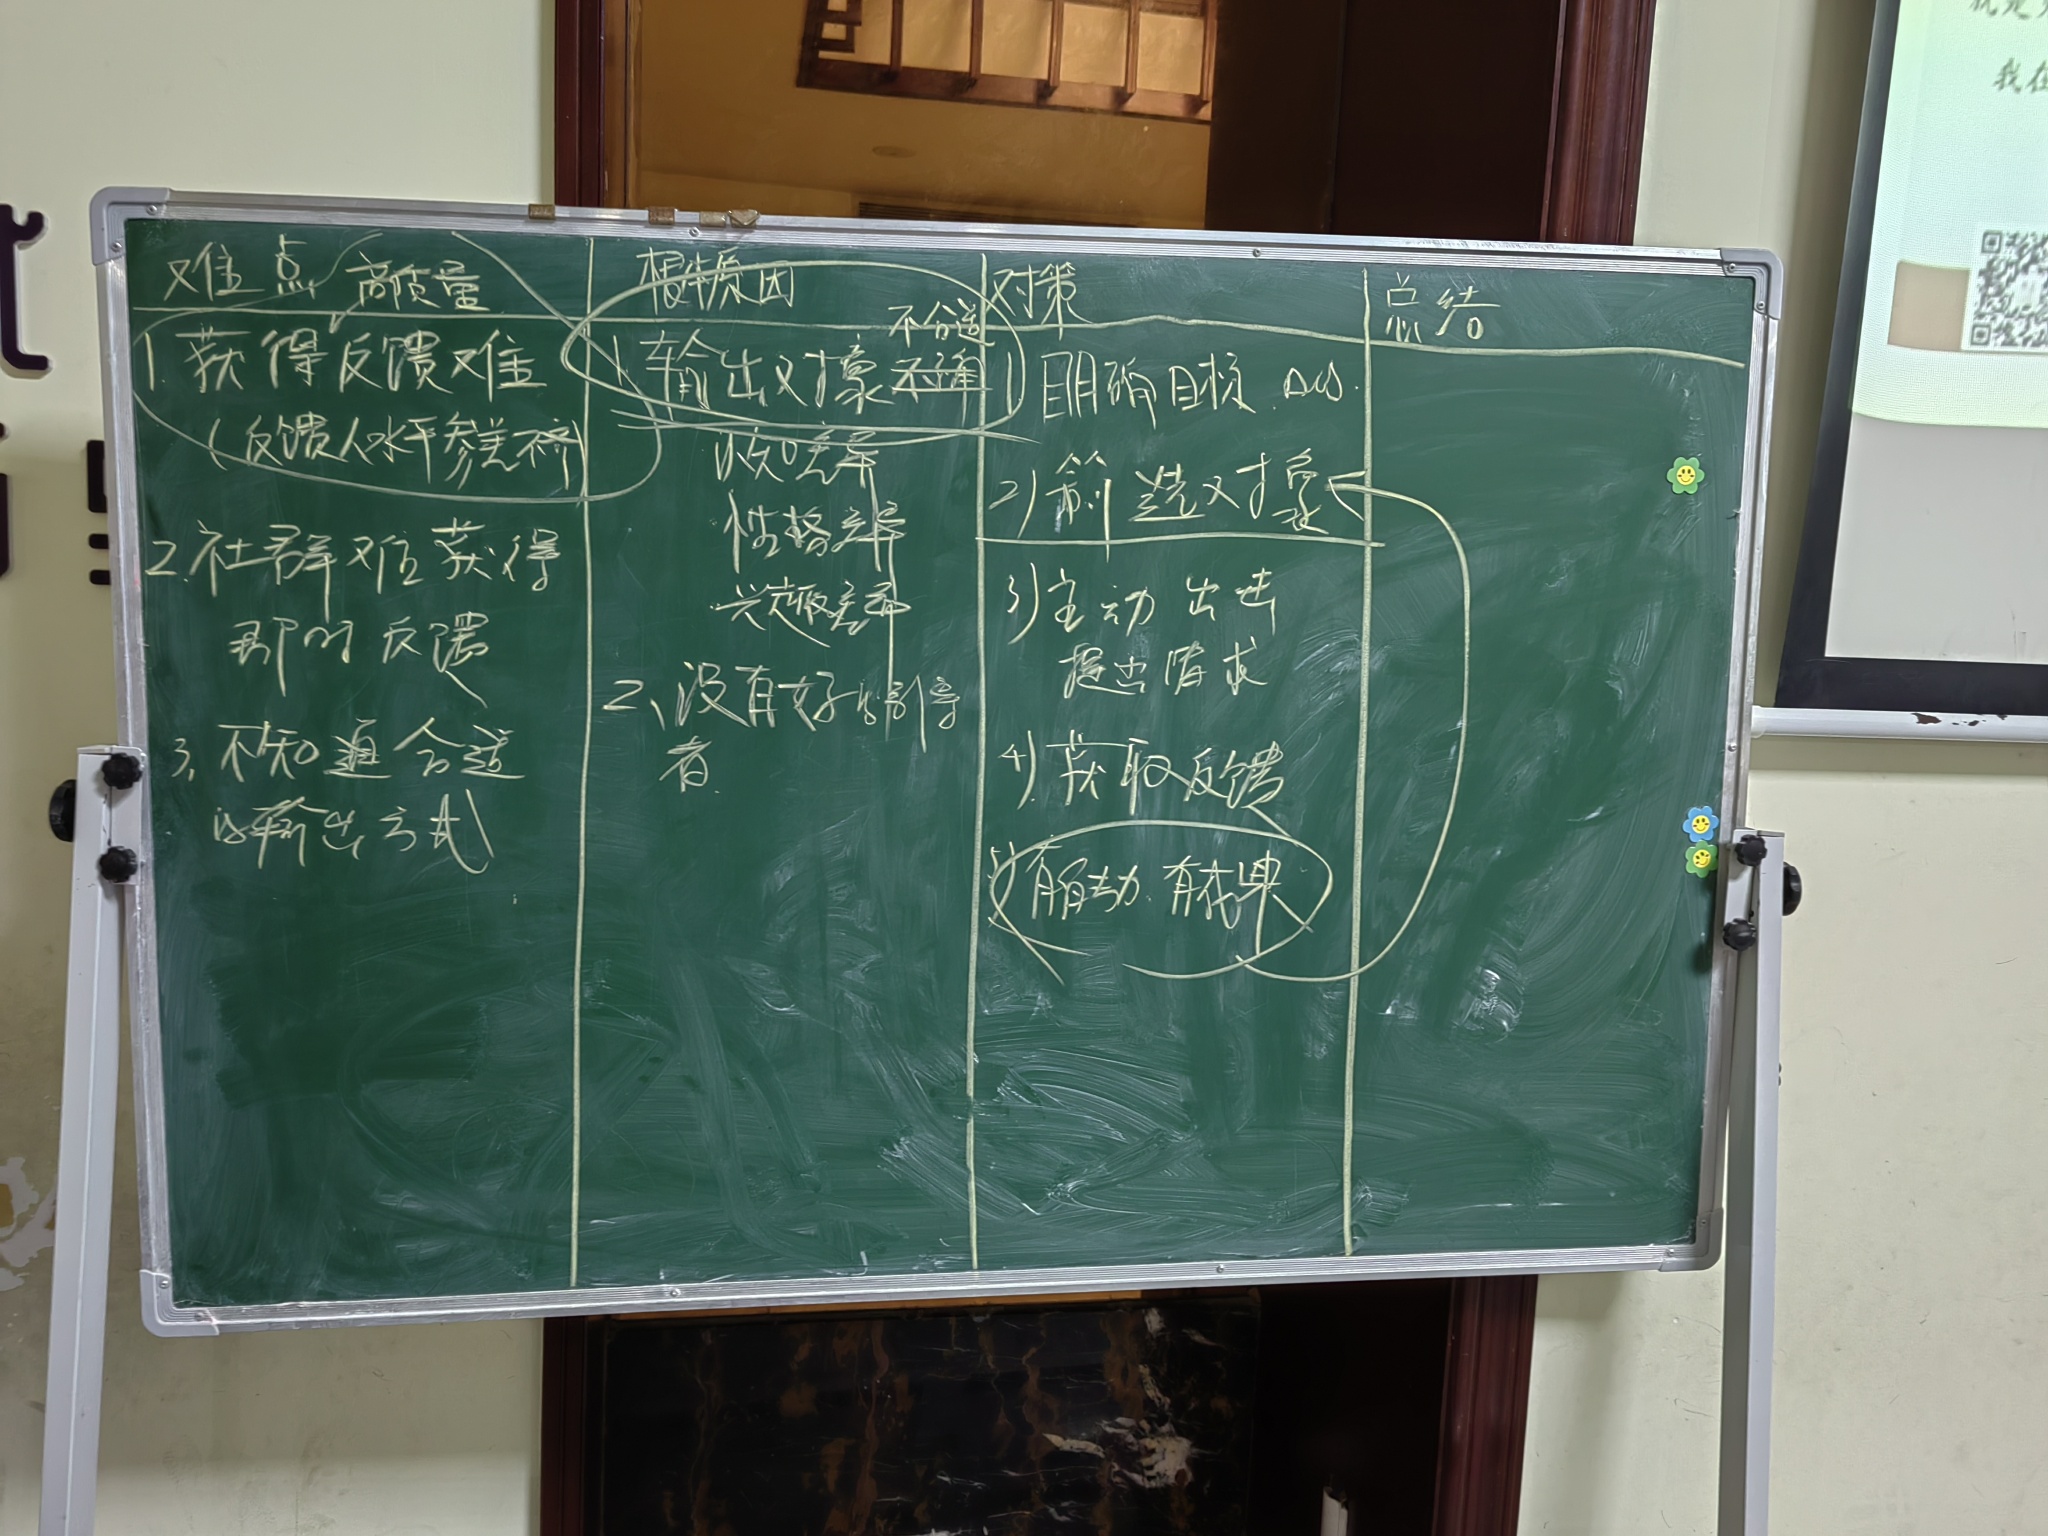 难点
高质量
1. 获得反馈难
(反馈人水平参差不齐)
2. 社群难获得
即时反馈
3. 不知道合适
的输出方式
根本原因
不合适
1. 输出对象不准
认知差异
性格差异
兴趣差异
2、没有好的引导
者.
对策
1) 明确目标
2) 筛选对象
3) 主动出击
提出请求
4) 获取反馈
5) 有行动. 有成果
总结
我在